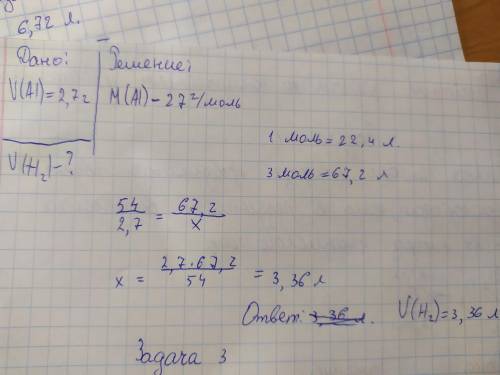 6,72 л.
Дано: Решение:
V(Al)=2,7г M(Al)-27г/моль
1 моль=22,4 л.
V(H₂)-?
3 моль=67,2 л
54/2,7 = 67,2/x
x = 2,7·67,2/54 = 3,36 л
Ответ: 3,36 л. V(H₂)=3,36 л
Задача 3